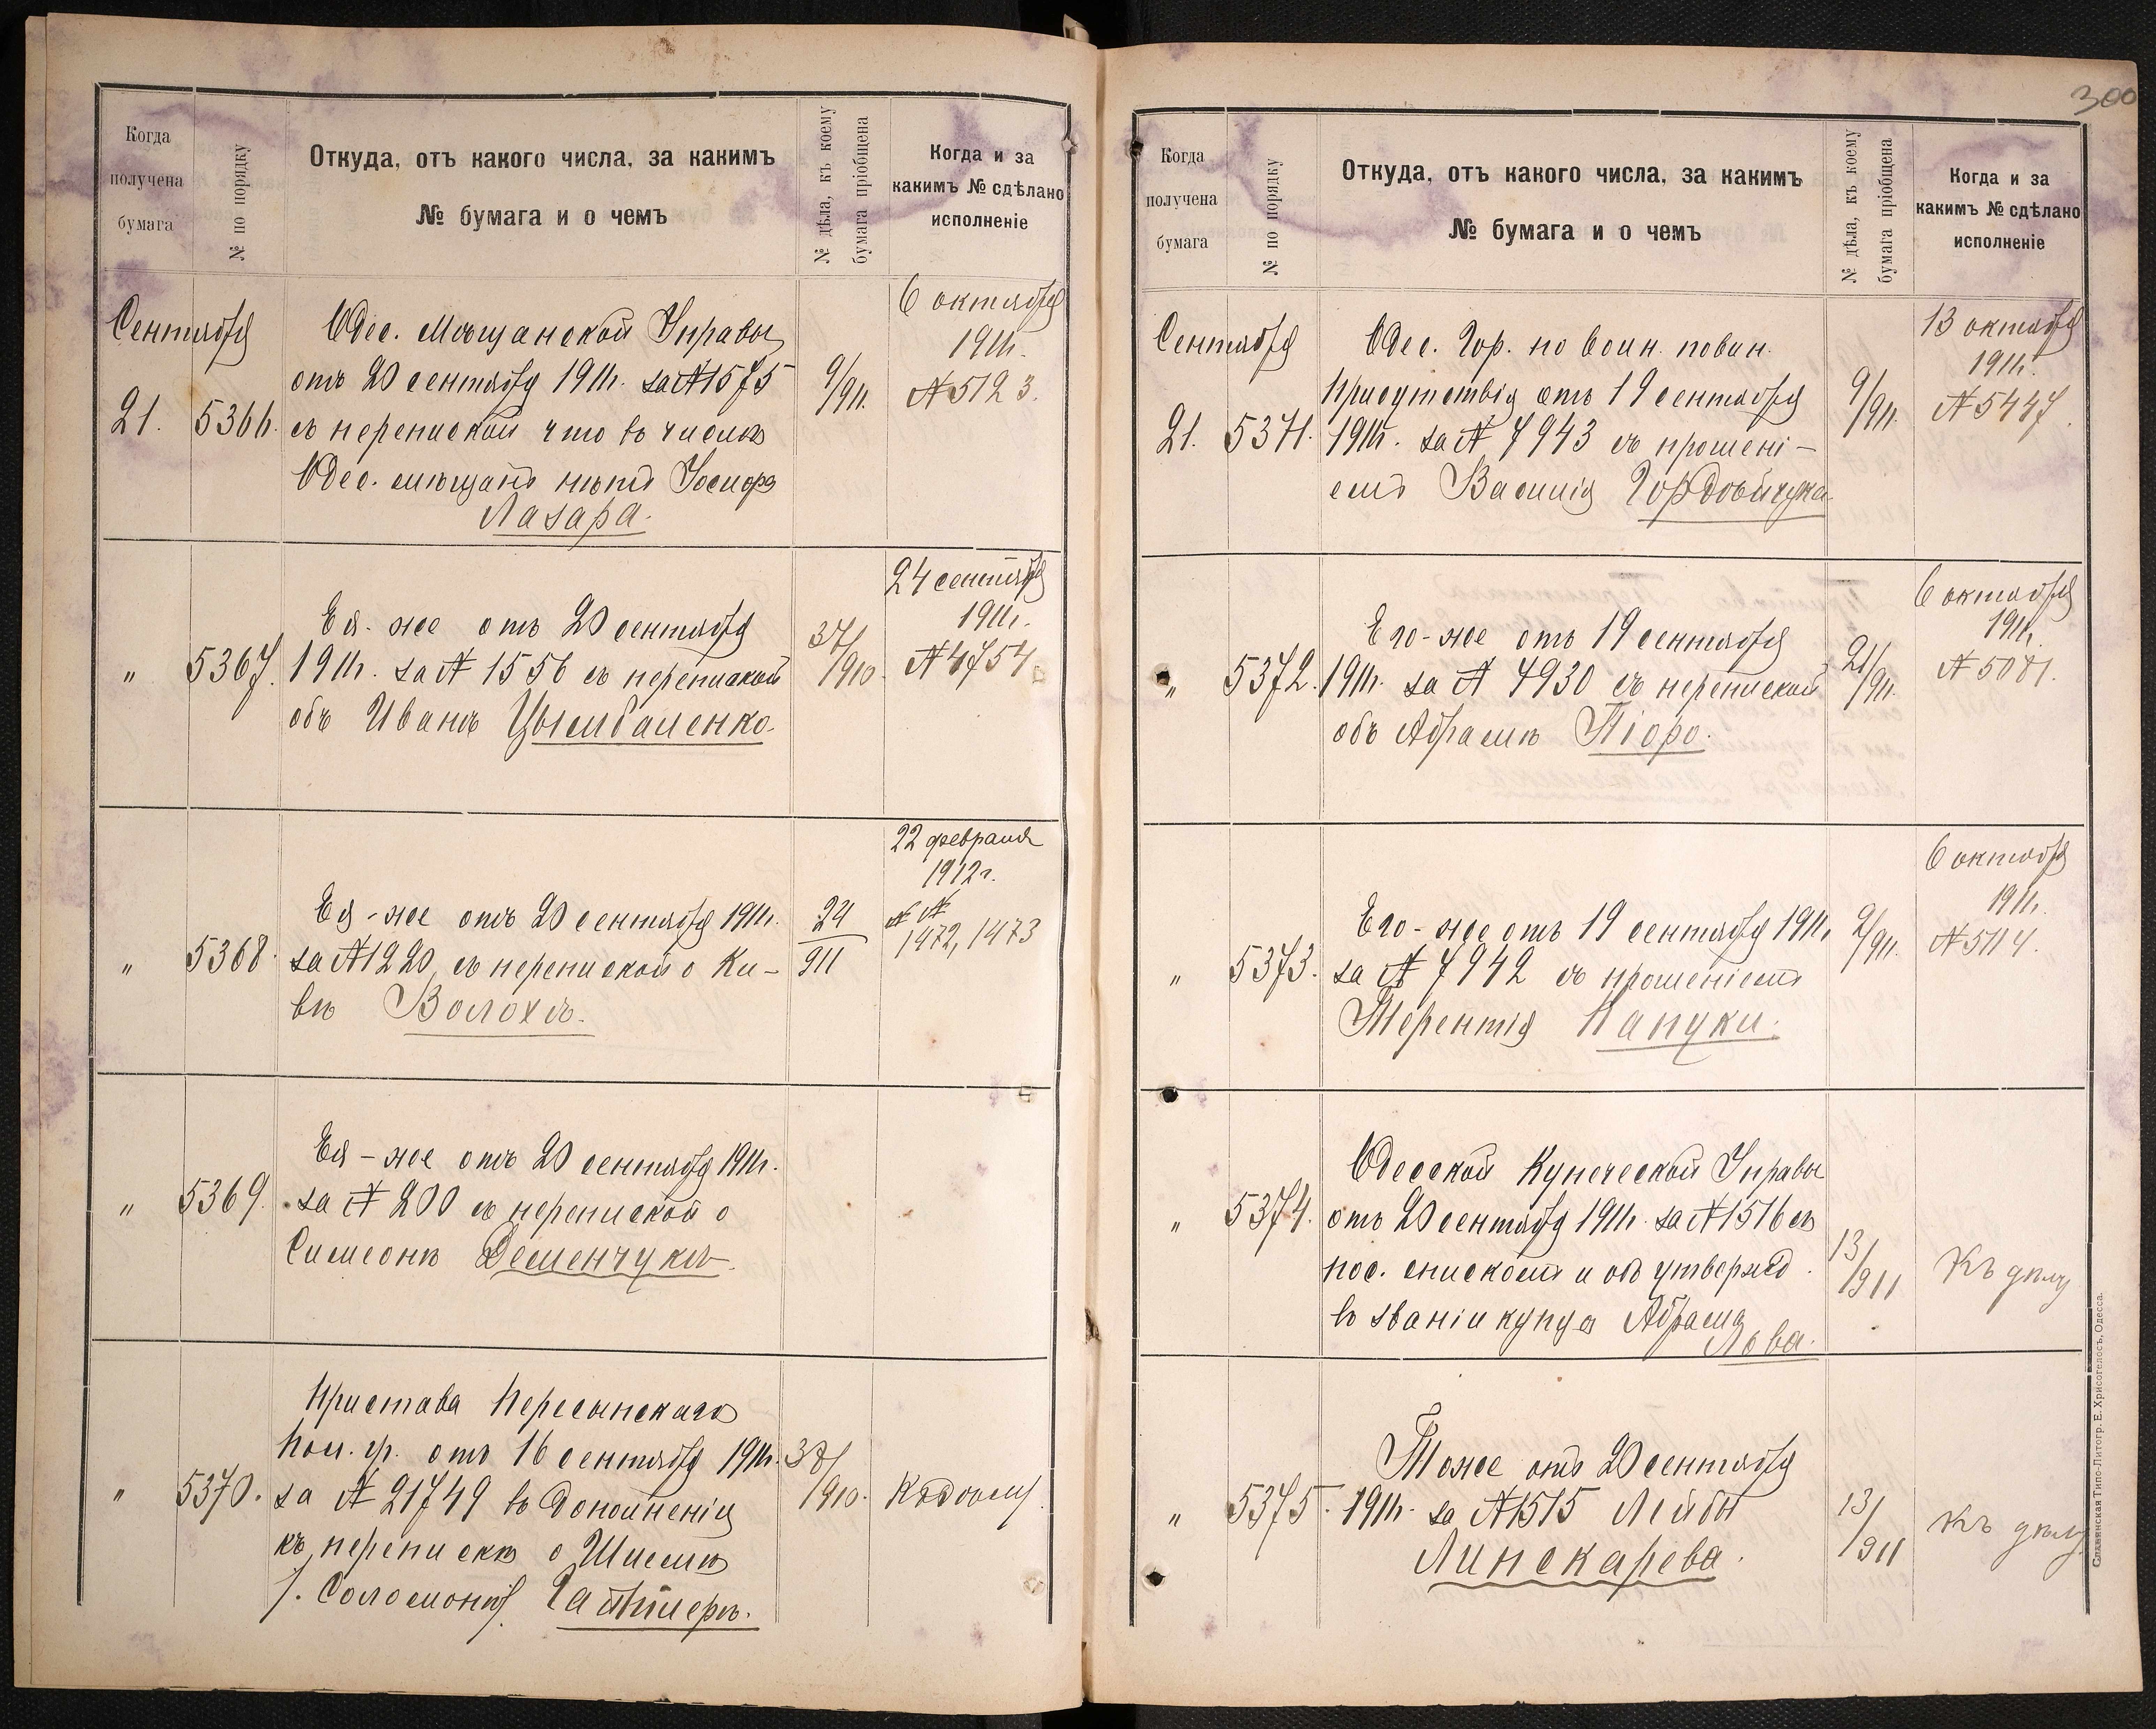 Когда
получена
бумага
№ по порядку
Откуда, отъ какого числа, за какимъ
№ бумага и о чемъ
№ дѣла, къ коему
бумага пріобщена
Когда и за
какимъ № сдѣлано
исполненіе
Сентября
21.
5366.
Одес. Мѣщанской Управы
отъ 20 сентября 1911г. за № 1575
съ перепиской что въ числѣ
Одес. мѣщанъ нѣтъ Іосифа
Лазара.
9/911.
6 октября
1911г.
№ 5123.
"
5367.
Ея-же отъ 20 сентября
1911г. за № 1556 съ перепиской
объ Иванѣ Цымбаленко.
37/1910.
24 сентября
1911г.
№ 4754
"
5368.
Ея-же отъ 20 сентября 1911г.
за № 1220, съ перепиской о Ки-
вѣ Волохъ.
24
911
22 февраля
1912г.
№ №
1472, 1473
"
5369.
Ея-же отъ 20 сентября 1911г.
за № 200 съ перепиской о
Симеонѣ Деменчукъ.
"
5370.
Пристава Пересыпскаго
пол. уч. отъ 16 сентября 1911г.
за № 21749 въ дополненіи
къ перепискѣ о Шиемѣ
Соломонѣ
38/1910.
300
Когда
получена
бумага
№ по порядку
Откуда, отъ какого числа, за какимъ
№ бумага и о чемъ
№ дѣла, къ коему
бумага пріобщена
Когда и за
какимъ № сдѣлано
исполненіе
Сентября
21.
5371.
Одес. Гор. по воин. повин.
Присутствія отъ 19 сентября
1911г. за № 7943 съ прошені-
емъ Василія
9/911.
13 октября
1911г.
№ 5447.
"
5372.
Его-же отъ 19 сентября
1911г. за № 7930 съ перепиской
объ Абрамѣ Піоро.
21/911.
6 октября
1911г.
№ 5081.
"
5373.
Его-же отъ 19 сентября 1911г.
за № 7942 съ прошеніемъ
Терентія Капуки.
9/911.
6 октября
1911г.
№ 5114.
"
5374.
Одесской Купеческой Управы
отъ 20 сентября 1911г. за № 1516 съ
пос. спискомъ и объ утвержд.
въ званіи купца Абрама
Льва.
13/911
Къ дѣлу
"
5375.
Тоже отъ 20 сентября
1911г. за № 1515 Лейбы
Линскарева.
13/911
Къ дѣлу
Славянская Типо-Литогр. Е. Хрисогелосъ, Одесса.